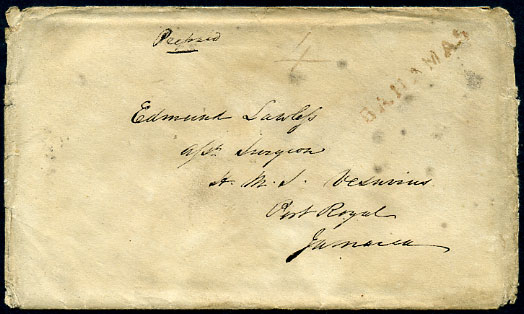 Prepaid
1/
BAHAMAS
Edmund Lawless
Asst Surgeon
H. M. S. Vesuvius
Port Royal
Jamaica